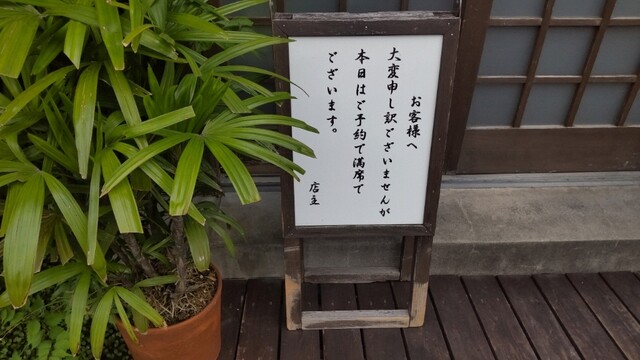 お客様へ
大変申し訳ございませんが
本日はご予約で満席で
ございます。
店主